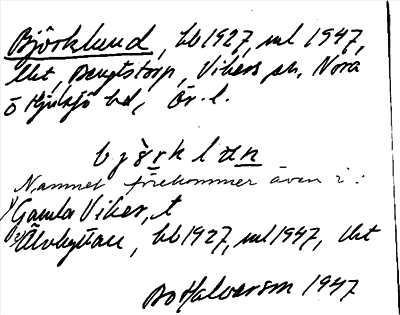 Björklund, bb 1927, ml 1947,
lht, Bengtstorp, Vikers sn, Nora
o Hjulsjö bd, Ör. l.
bjö̀rklun
Namnet förekommer även i:
1) Gamla Viker, t
2) Älvhyttan, bb 1927, ml 1947, lht
Bo Halvarson 1947